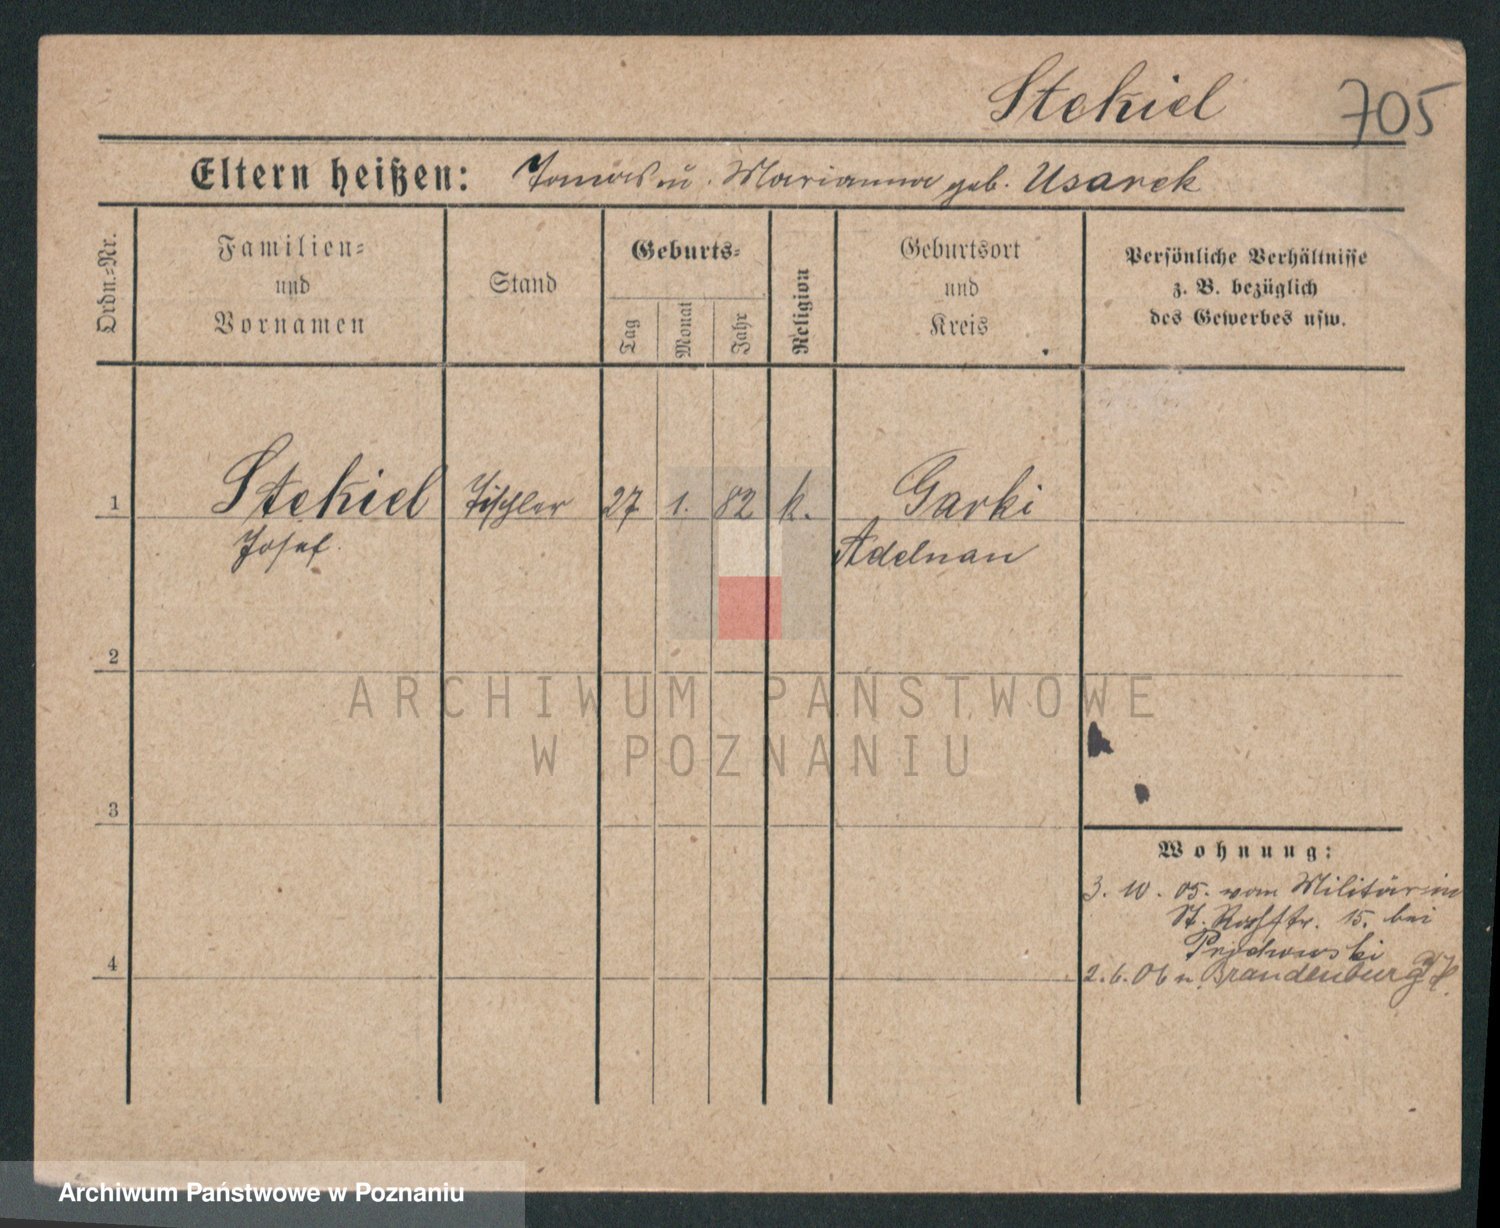 Stekiel 705
Eltern heißen: Tomas u. Marianna geb. Usarek
Ordn.-Nr.
Familien-
und
Vornamen
Stand
Geburts-
Tag
Monat
Jahr
Religion
Geburtsort
und
Kreis
Persönliche Verhältnisse
z. B. bezüglich
des Gewerbes usw.
1 Stekiel Tischler 27 1. 82 k. Garki
Josef Adelnau
2
ARCHIWUM PAŃSTWOWE
W POZNANIU
3
Wohnung:
3. 10. 05. vom Militär in
St. 15. bei
4
2. 6. 06 n. Brandenburg a/H.
Archiwum Państwowe w Poznaniu